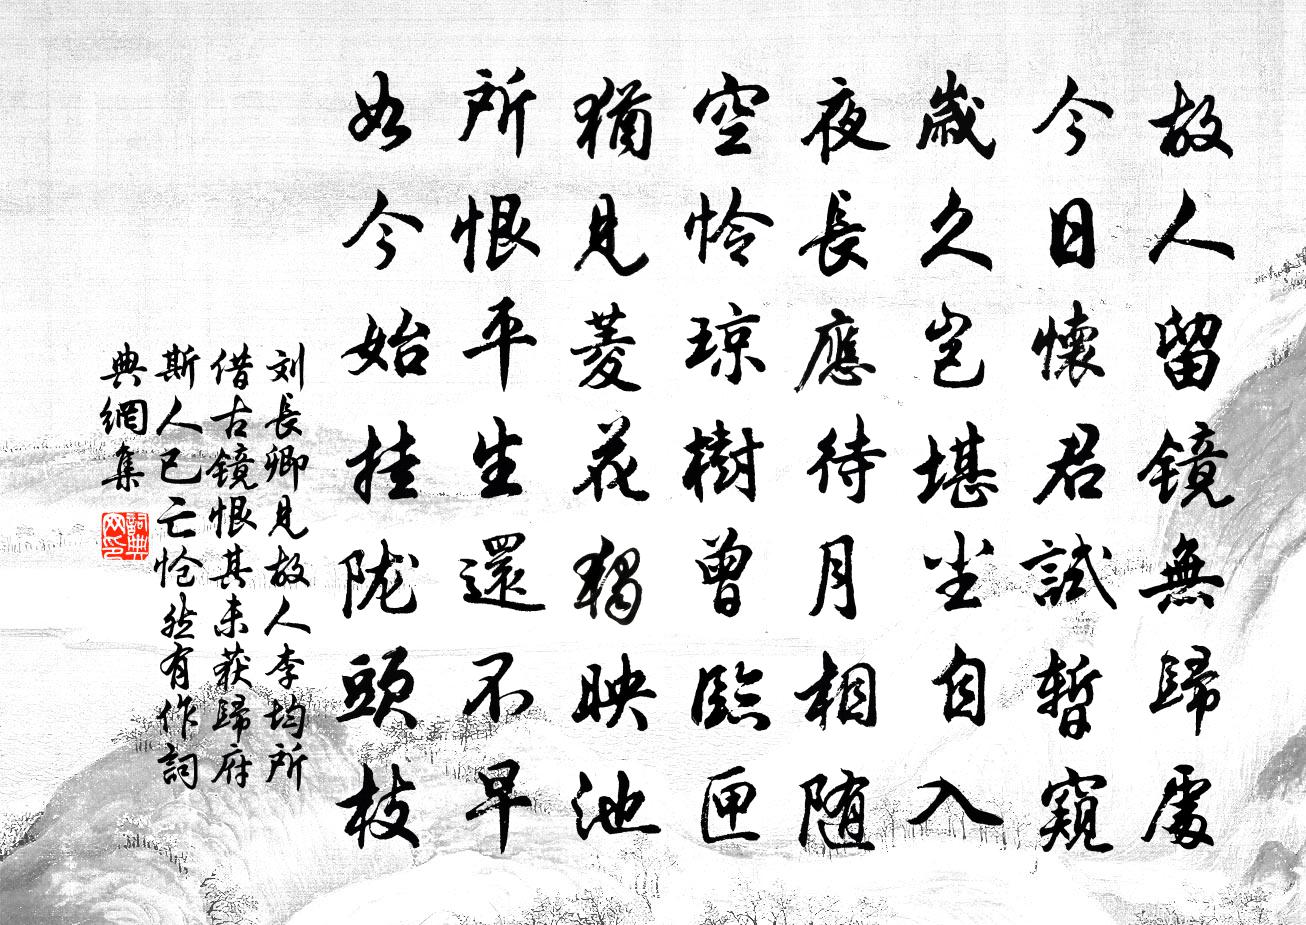 故人留镜無歸處
今日懷君試暫窺
歲久豈堪塵自入
夜長應待月相随
空怜琼樹曾臨匣
猶見菱花独映池
所恨平生還不早
如今始挂陇頭枝
刘長卿見故人李均所
借古镜恨其未获歸府
斯人已亡怆然有作詞
典網集
詞典網印